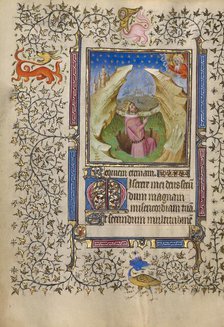 Requiem eternam.
Miserere mei deus secu
dum magnam
misericordiam tua
Et secundum multitudine